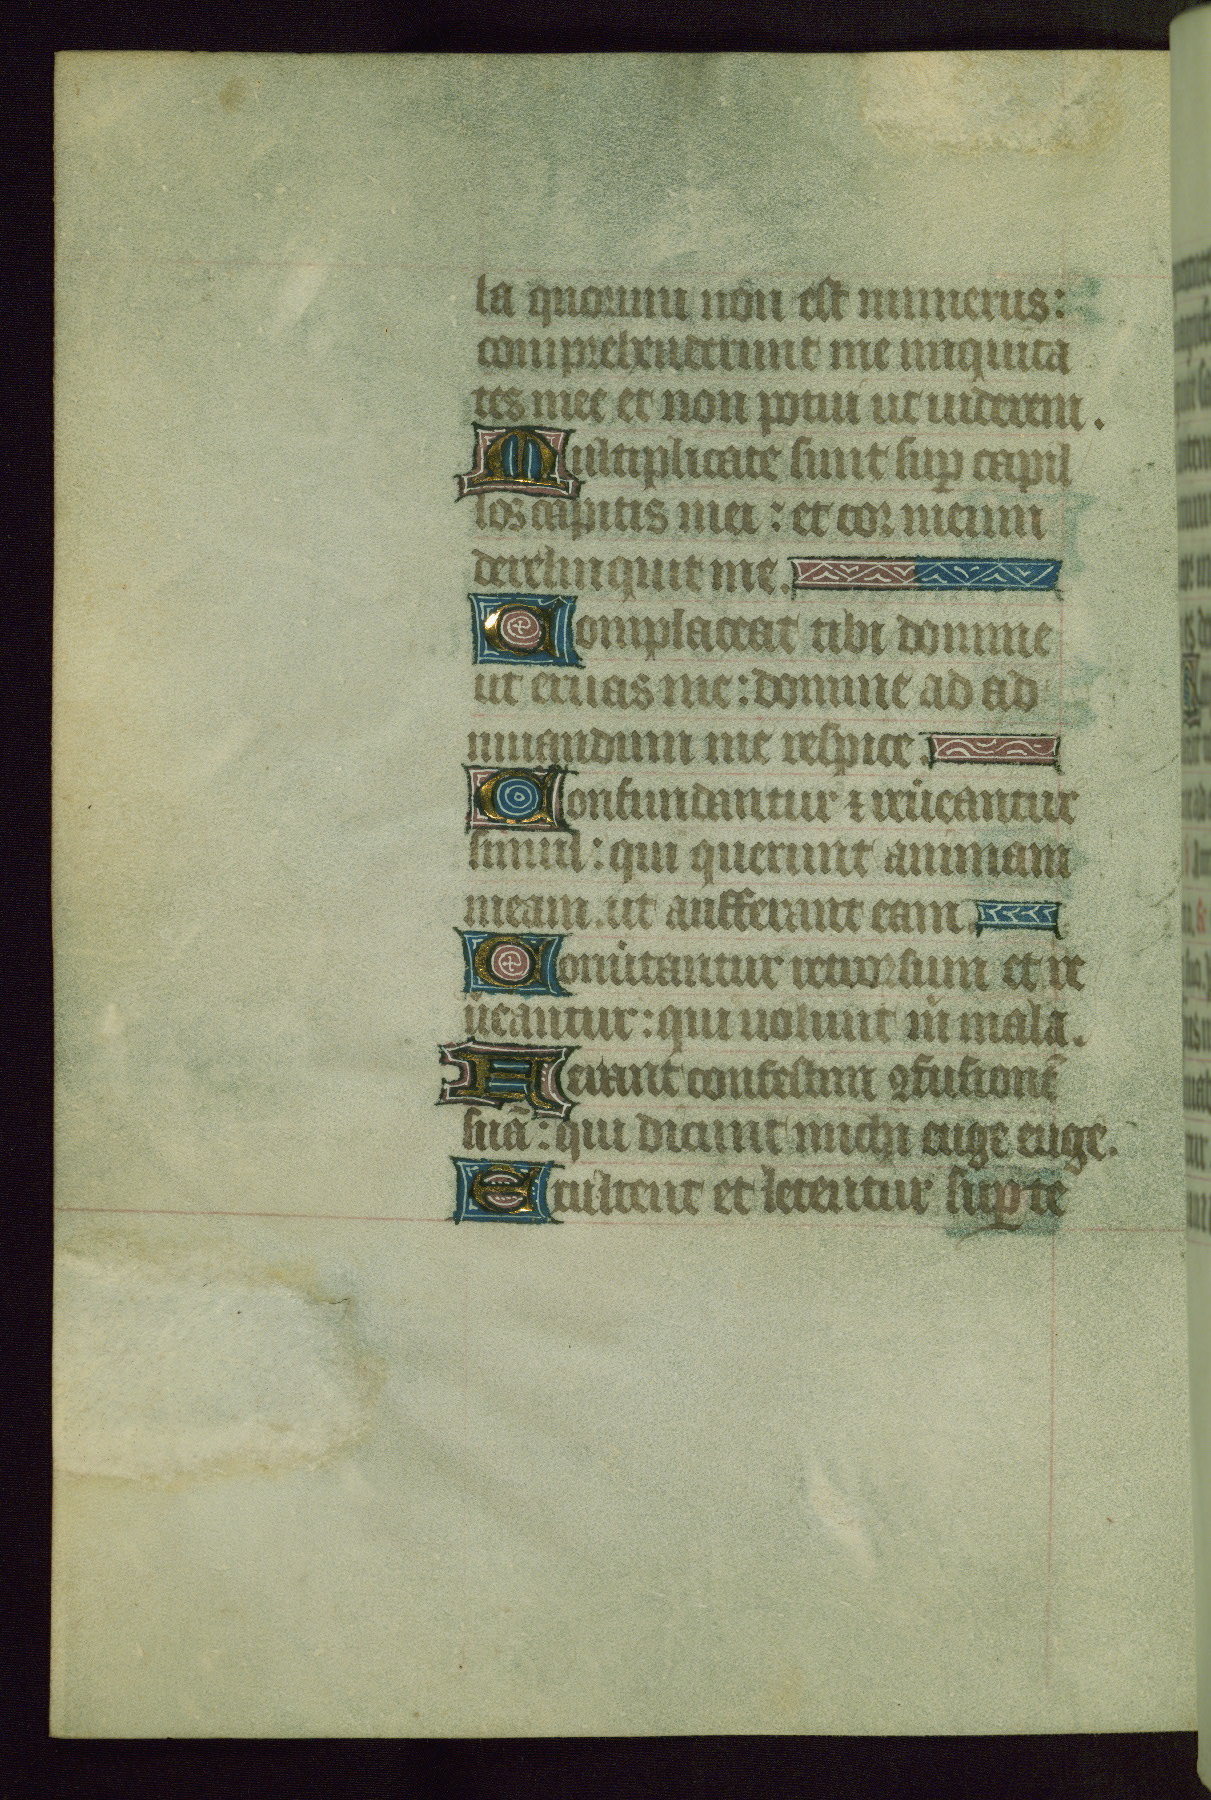 la quorum non est numerus:
comprehenderunt me iniquita
tes mee et non potui ut uiderem.
Multiplicate sunt sup capil
los capitis mei: et cor meum
dereliquit me.
Complaceat tibi domine
ut eruas me: domine ad ad
iuuandum me respice.
Confundantur ⁊ reueantur
simul: qui querunt animam
meam. ut aufferant eam.
Conuertantur retrorsum et re
ueantur: qui uolunt m mala.
Ferant confestim ꝯfusionē
suā: qui dicunt michi euge euge.
Exultent et letentur sup te